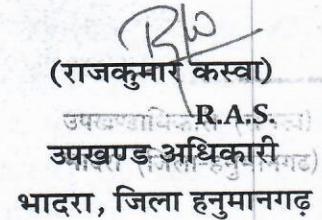 (राजकुमार कस्वा)
R.A.S.
उपखण्ड अधिकारी
भादरा, जिला हनुमानगढ़